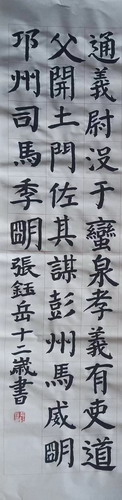 通義尉没于蠻泉孝義有吏道
父開土門佐其謀彭州馬威明
邛州司馬季明張鈺岳十二歲書